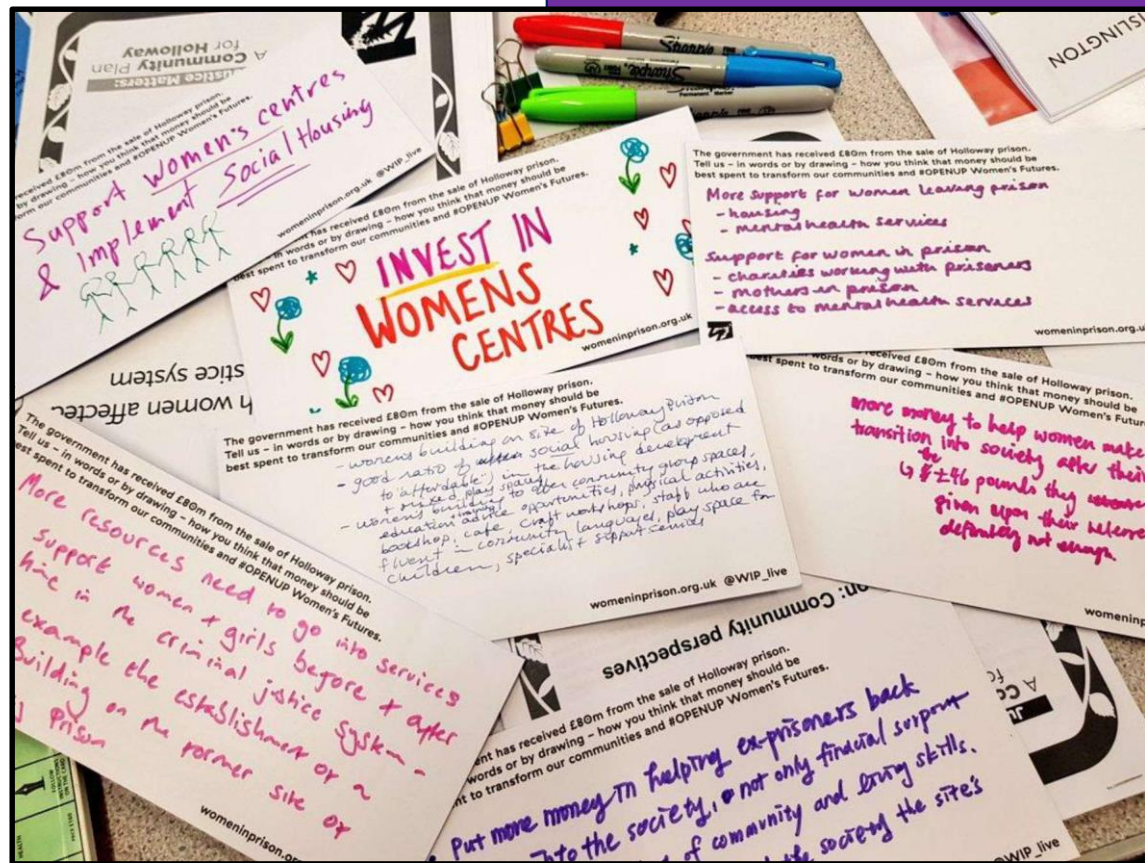 A Community Plan
for Holloway
Justice Matters:
received £80m from the sale of Holloway prison.
by drawing – how you think that money should be
our communities and #OPENUP Women's Futures.
Support women's centres
& Implement Social Housing
womeninprison.org.uk @WIP_live
Sharpie
Sharpie
Permanent Marker
SLINGTON
has received £80m from the sale of Holloway prison.
in words or by drawing – how you think that money should be
best spent to transform our communities and #OPENUP Women's Futures.
INVEST IN
WOMENS
CENTRES
womeninprison.org.uk
The government has received £80m from the sale of Holloway prison.
Tell us – in words or by drawing – how you think that money should be
best spent to transform our communities and #OPENUP Women's Futures.
More support for women leaving prison
- housing
- mental health services
Support for women in prison
- charities working with prisoners
- mothers in prison
- access to mental health services
womeninprison.org.u
stice system
h women affected
The government has received £80m from the sale of Holloway prison.
Tell us – in words or by drawing – how you think that money should be
best spent to transform our communities and #OPENUP Women's Futures.
- women's building on site of Holloway Prison
- good ratio of social housing (as opposed
to 'affordable') in the housing development
+ play spaces
- women's building to offer community group spaces,
education advice training opportunities, physical activities,
bookshop, cafe, craft workshops, staff who are
fluent in community languages, play space for
children, specialist support services
womeninprison.org.uk @WIP_live
received £80m from the sale of Holloway prison.
words or by drawing – how you think that money should be
spent to transform our communities and #OPENUP Women's Future
more money to help women make
transition into society after their
↳ the ££46 pounds they
given upon their release
definitely not enough.
womeninp
The government has received £80m from the sale of Holloway prison.
Tell us – in words or by drawing – how you think that money should be
best spent to transform our communities and #OPENUP Women's Futures.
More resources need to go into services
support women + girls before + after
time in the criminal justice system -
example the establishment of a
Building on the former site of
prison
womeninprison.or
on: Community perspectives
ent has received £80m from the sale of Holloway prison.
words or by drawing – how you think that money should be
nt to transform our communities and #OPENUP Women's Futures.
Put more money in helping ex-prisoners back
into the society, not only financial support
of community and living skills.
society the site's
@WIP_live
HEALTH
FOLLOW
INSTRUCTIONS
ON THE CARD